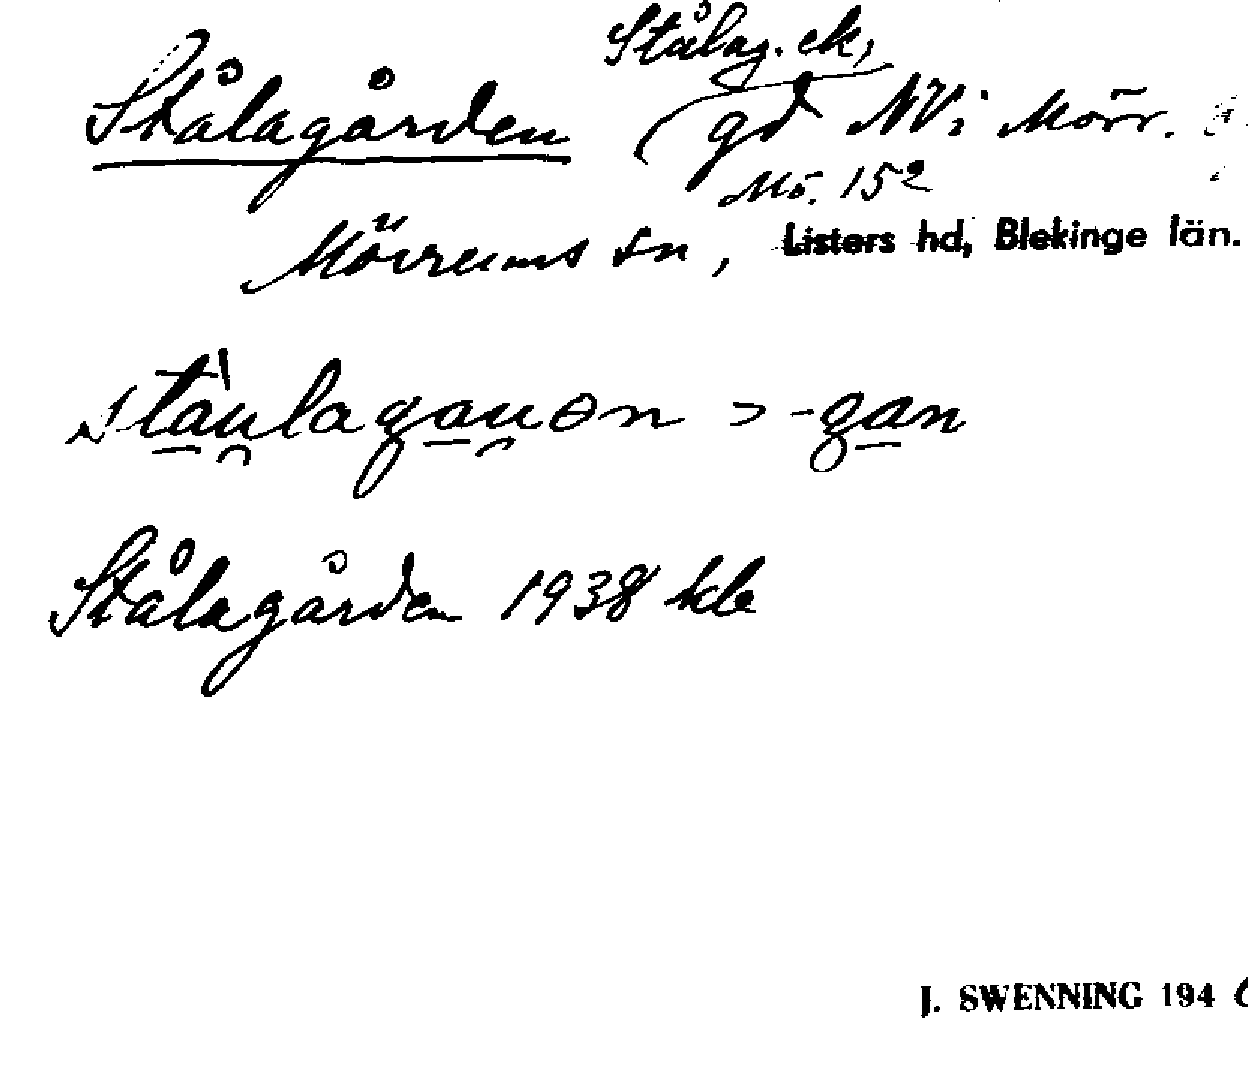 Stålag. ek,
Stålagården gd NV i Mörr.
Mö. 15²
Mörrums sn, Listers hd, Blekinge län.
Stålagården 1938 kle
J. SWENNING 194